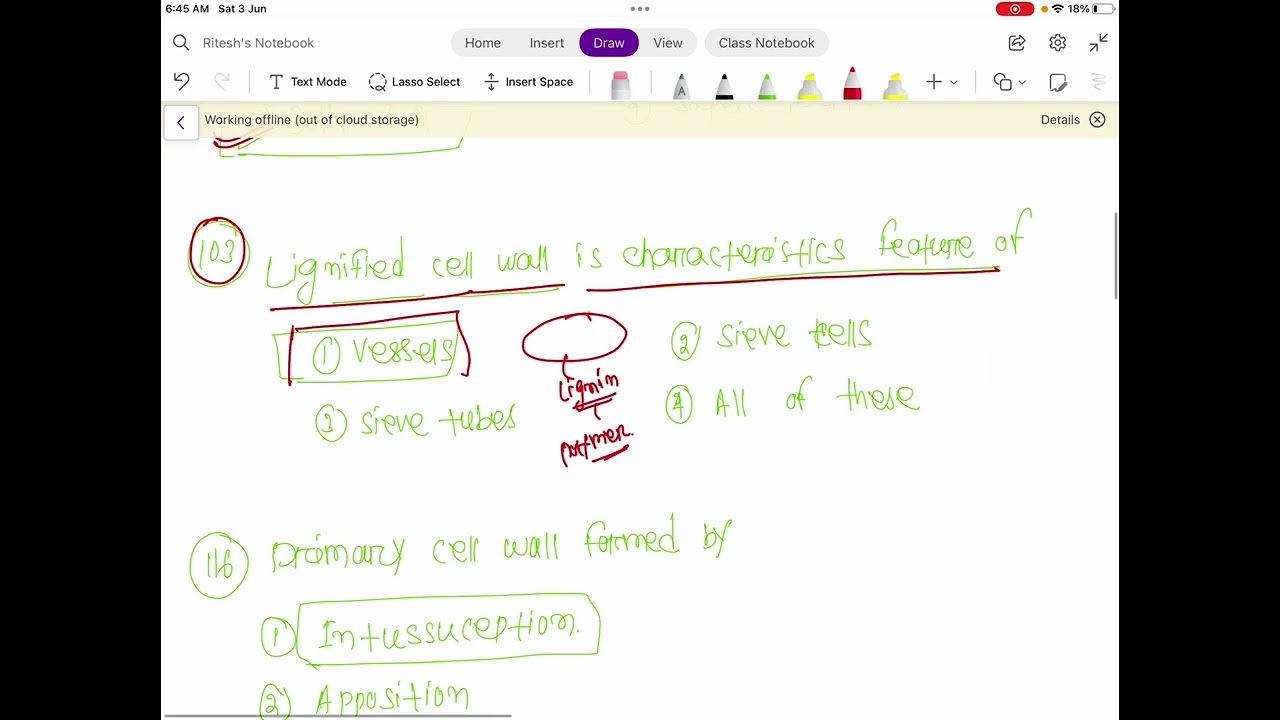 6:45 AM Sat 3 Jun
18%
Ritesh's Notebook
Home Insert Draw View Class Notebook
Text Mode Lasso Select Insert Space
Working offline (out of cloud storage) Details
103 Lignified cell wall is characteristics feature of
1 Vessels
2 Sieve cells
3 Sieve tubes
4 All of these
Lignin
116 Primary cell wall formed by
1 Intussuception.
2 Apposition